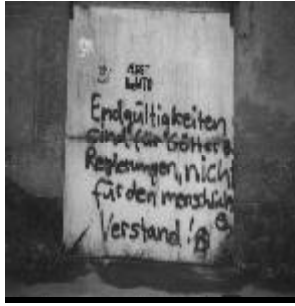 Endgültigkeiten
sind für Götter &
Regierungen, nicht
für den menschlich
Verstand!